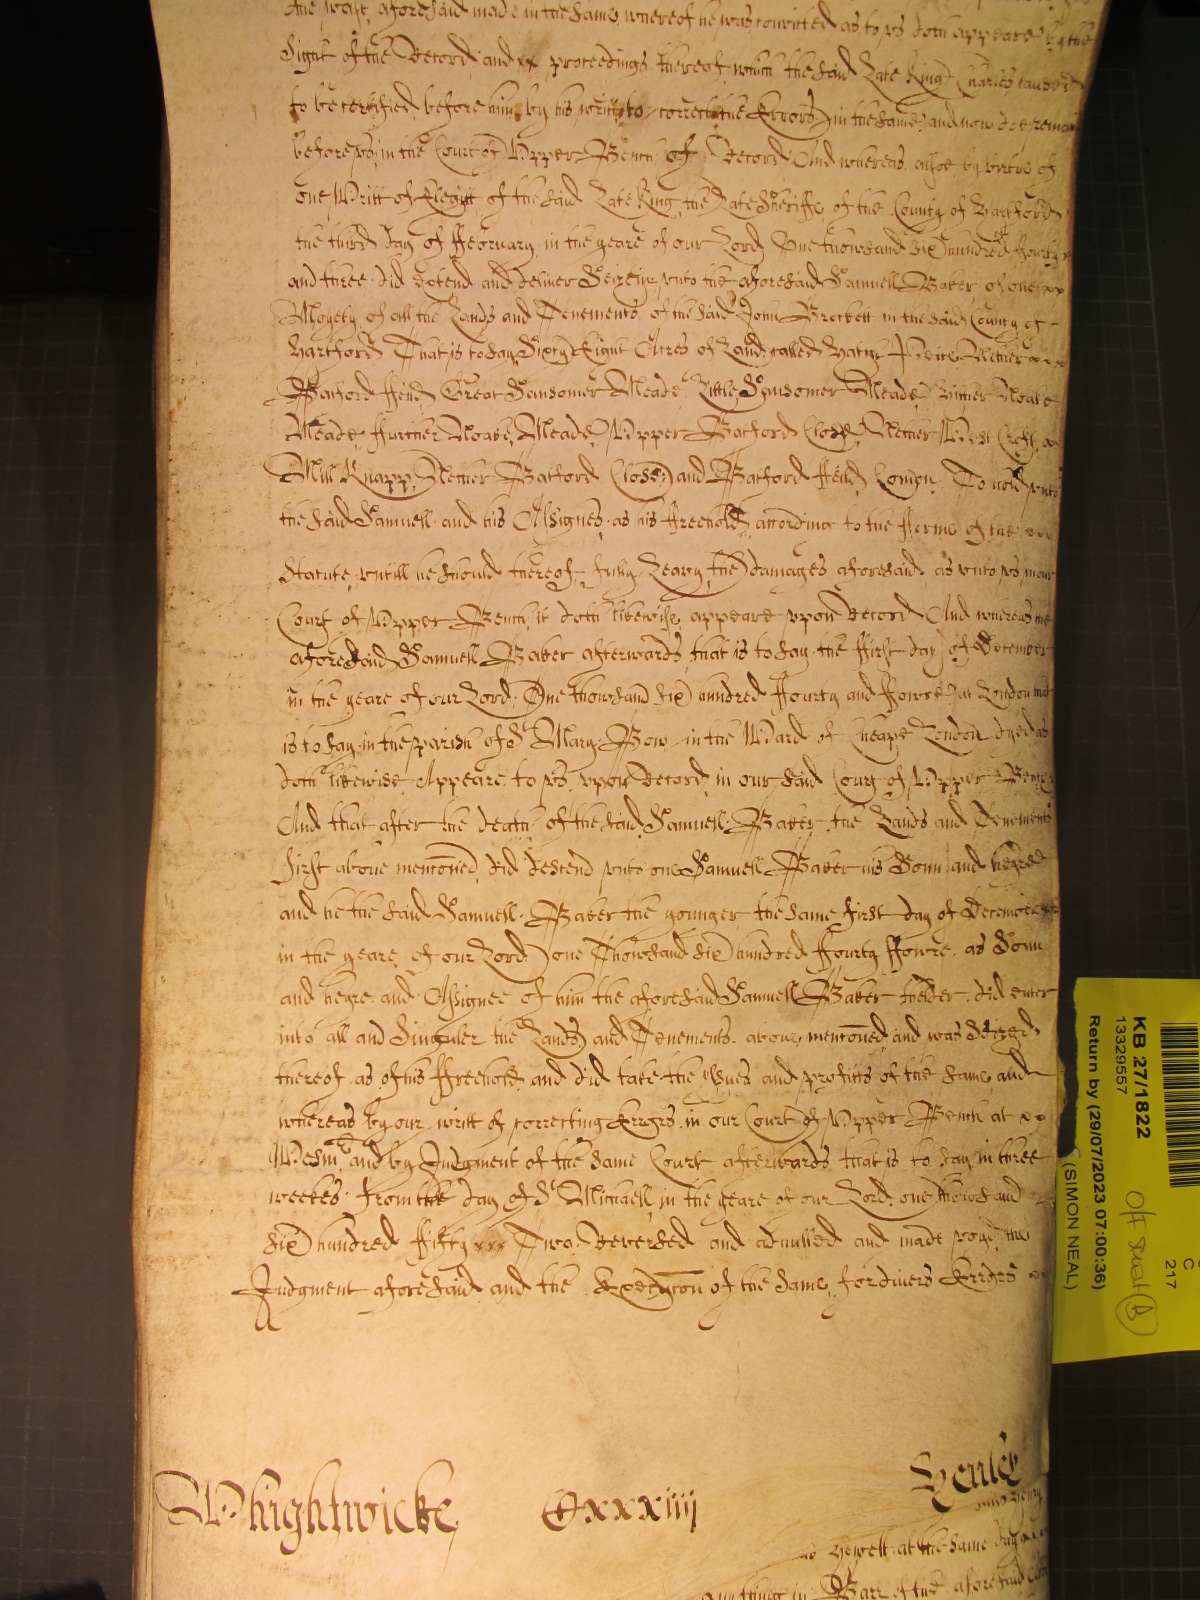 the wast aforesaid made in the same whereof he was convicted as to vs doth appeare by the
Sight of the Record and xx proceedings thereof which the said Late King Charles caused
to be certified before him by his writt to correct the Errors in the same and now doe remain
before vs in the Court of Vpper Bench of Record And whereas alsoe by vertue of
one Writt of Elegitt of the said Late King the Late Sheriffe of the County of Hartford
the third day of ffebruary in the yeare of our Lord One thowsand six hundred ffourty
and three did extend and deliver vnto the aforesaid Samuell Baker of one xx
Moyety of all the Lands and Tenements of the said John Brockett in the said County of
Hartford That is to say Sixty Eight Acres of Land called Nether xxx
Batford ffeild Great Sansomer Meade Little Sansomer Meade hither Moate
Meade ffurther Moate Meade Vpper Batford Close Nether West Croft xx
Mill Knapp Nether Batford Close and Batford ffeild Comon To hold vnto
the said Samuell and his Assignes as his ffreehold according to the fforme of the xxx
Statute vntill he should thereof fully Leavy the damages aforesaid as vnto vs in our
Court of Vpper Bench it doth likewise appeare vpon Record And whereas the
aforesaid Samuell Baker afterwards that is to say the ffirst day of December
in the yeare of our Lord One thowsand six hundred ffourty and ffowre at London that
is to say in the parish of St Mary Bow in the Ward of Cheape London dyed as
doth likewise Appeare to vs vpon Record in our said Court of Vpper Bench
And that after the death of the said Samuell Baker the Lands and Tenements
first above mencioned did descend vnto one Samuell Baker his Sonn and heyre
and he the said Samuell Baker the younger the same first day of December
in the yeare of our Lord one Thowsand six hundred ffourty ffowre as Sonn
and heyre and Assignee of him the aforesaid Samuell Baker thelder did enter
into all and Singuler the Lands and Tenements above mencioned and was Seized
thereof as of his ffreehold and did take the yssues and profitts of the same and
whereas by our writt of correcting Errors in our Court of Vpper Bench at xx
Westm and by Judgment of the same Court afterwards that is to say in three
weekes from the day of St Michaell in the yeare of our Lord one thowsand
six hundred fifty xxx Two Reversed and adnulled and made voyd the
Judgment aforesaid and the Execucon of the same for divers Errors xx
Whightwicke Cxxxiiij Henley
Hewett at the same day
any thing in Barr of the aforesaid
KB 27/1822
13329557
Return by (29/07/2023 07:00:36)
(SIMON NEAL)
C
217